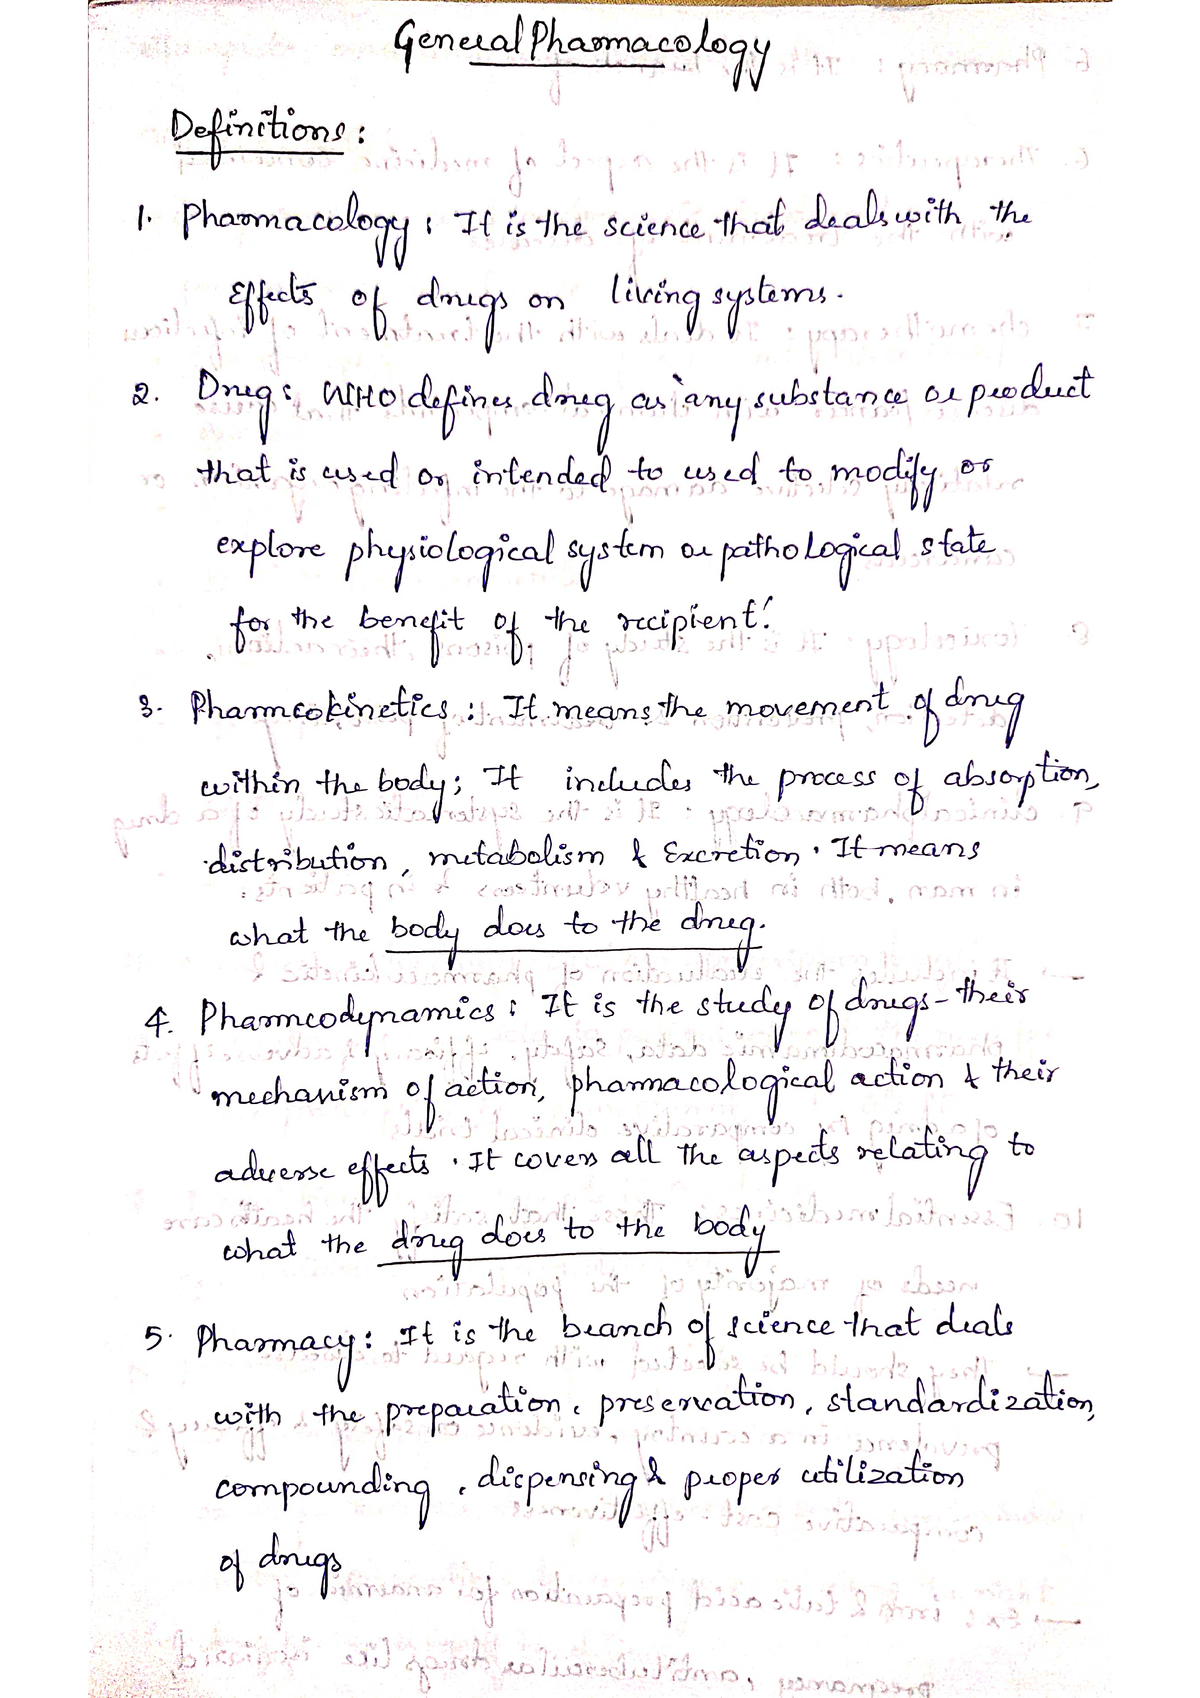 General Pharmacology
Definitions :
1. Pharmacology : It is the science that deals with the
Effects of drugs on living systems.
2. Drug : WHO defines drug as 'any substance or product
that is used or intended to used to modify or
explore physiological system or pathological state
for the benefit of the recipient!
3. Pharmcokinetics : It means the movement of drug
within the body; It includes the process of absorption,
distribution, metabolism & Excretion. It means
what the body does to the drug.
4. Pharmcodynamics : It is the study of drugs - their
mechanism of action, pharmacological action & their
adverse effects. It covers all the aspects relating to
what the drug does to the body
5. Pharmacy : It is the branch of science that deals
with the preparation, preservation, standardization,
compounding, dispensing & proper utilization
of drugs